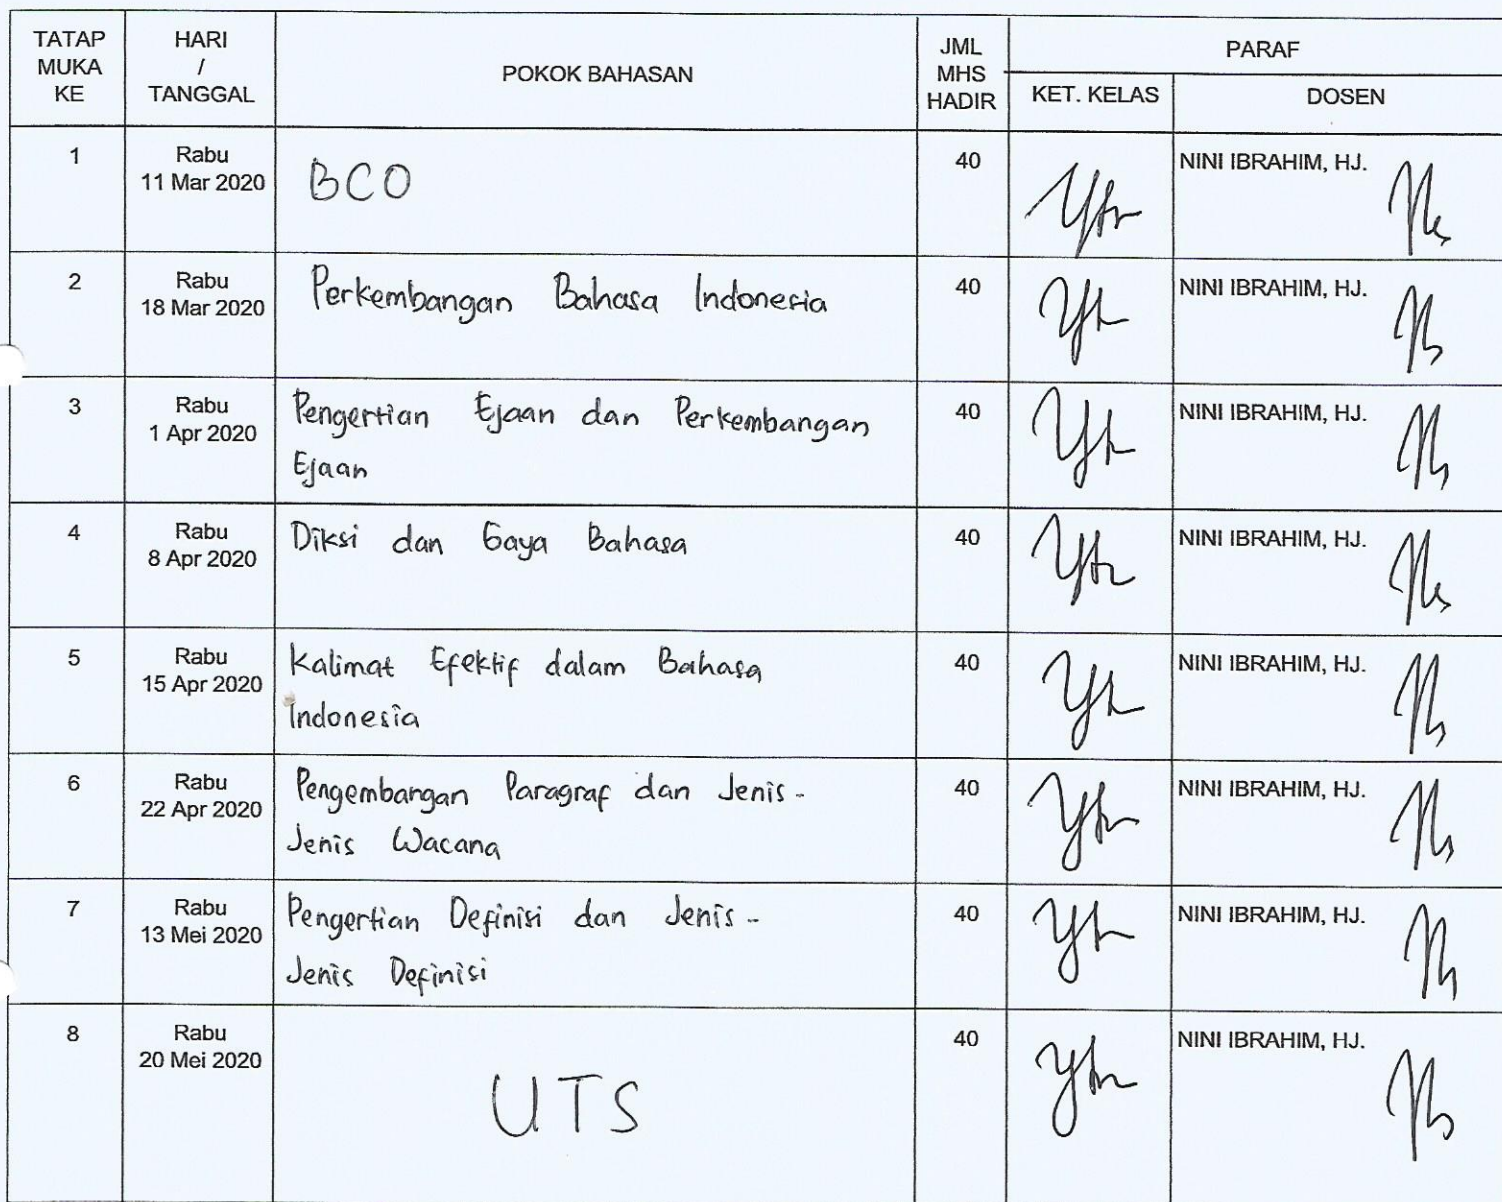 TATAP MUKA KE
HARI / TANGGAL
POKOK BAHASAN
JML MHS HADIR
PARAF
KET. KELAS
DOSEN
1
Rabu
11 Mar 2020
BCO
40
NINI IBRAHIM, HJ.
2
Rabu
18 Mar 2020
Perkembangan Bahasa Indonesia
40
NINI IBRAHIM, HJ.
3
Rabu
1 Apr 2020
Pengertian Ejaan dan Perkembangan
Ejaan
40
NINI IBRAHIM, HJ.
4
Rabu
8 Apr 2020
Diksi dan Gaya Bahasa
40
NINI IBRAHIM, HJ.
5
Rabu
15 Apr 2020
Kalimat Efektif dalam Bahasa
Indonesia
40
NINI IBRAHIM, HJ.
6
Rabu
22 Apr 2020
Pengembangan Paragraf dan Jenis-
Jenis Wacana
40
NINI IBRAHIM, HJ.
7
Rabu
13 Mei 2020
Pengertian Definisi dan Jenis-
Jenis Definisi
40
NINI IBRAHIM, HJ.
8
Rabu
20 Mei 2020
UTS
40
NINI IBRAHIM, HJ.